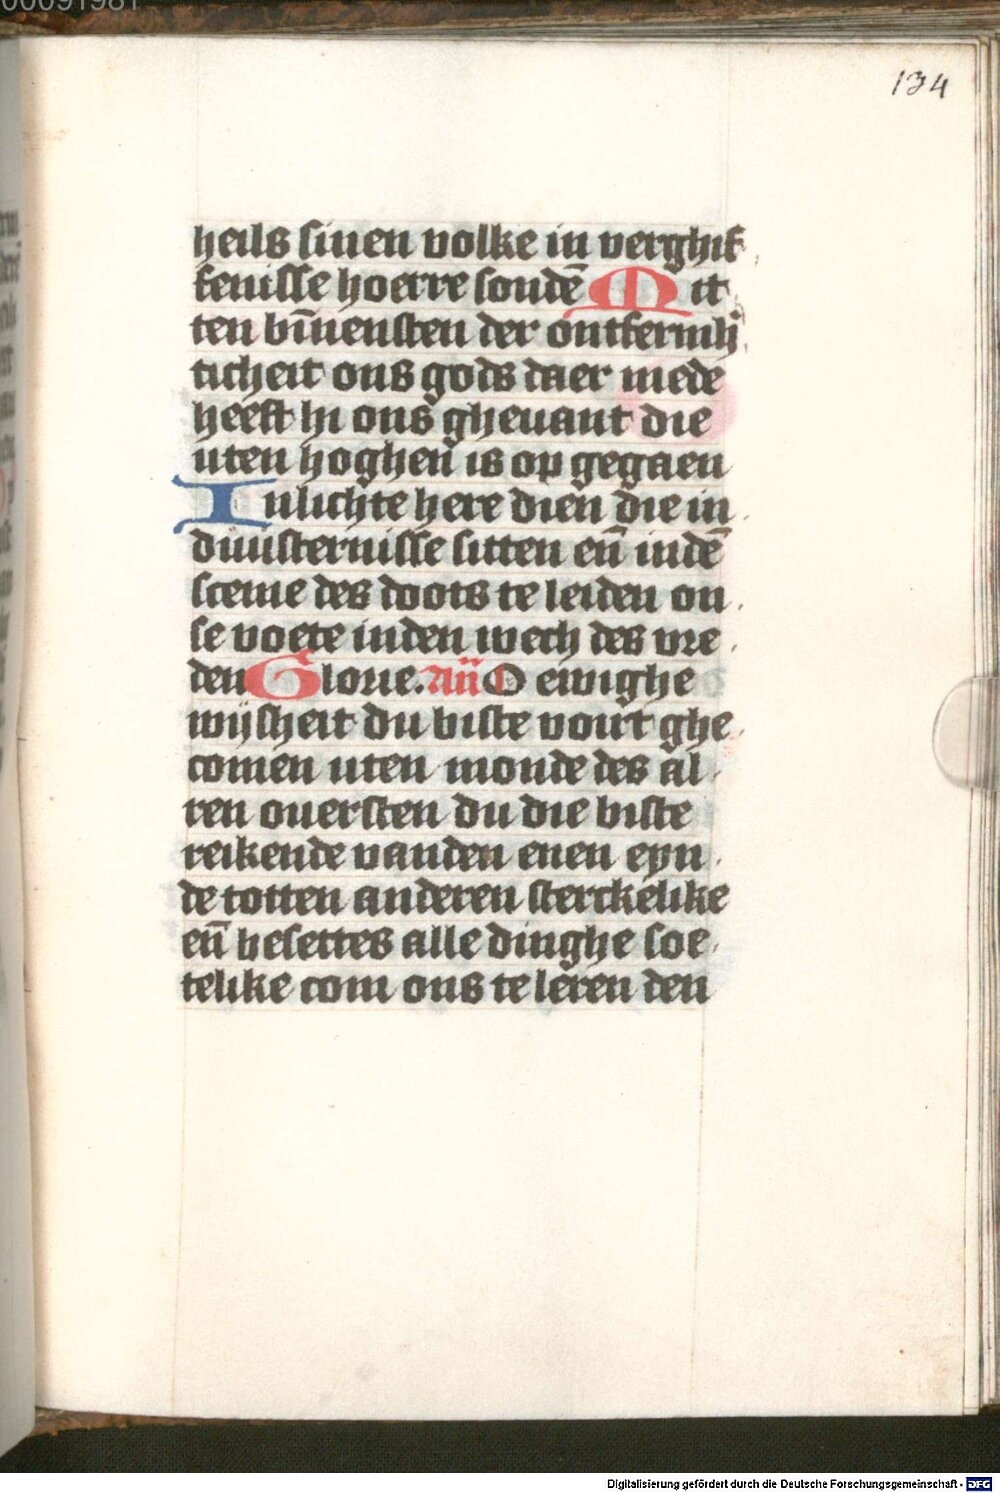 00091981
134
heils sinen volke in verghif
fenisse hoerre sondē Mit
ten bīnensten der ontfermh
ticheit ons gods daer mede
heeft hi ons ghevant die
uten hoghen is op gegaen
Inlichte here dien die in
duusternisse sitten en̄ indē
sceme des doots te leiden on
se voete inden wech des vre
den Glorie. An̄ O ewighe
wijsheit du biste vourt ghe
comen uten monde des al
ren oversten du die biste
reikende vanden enen eyn
de totten anderen sterckelike
en̄ besettes alle dinghe soe
telike com ons te leren den
Digitalisierung gefördert durch die Deutsche Forschungsgemeinschaft - DFG